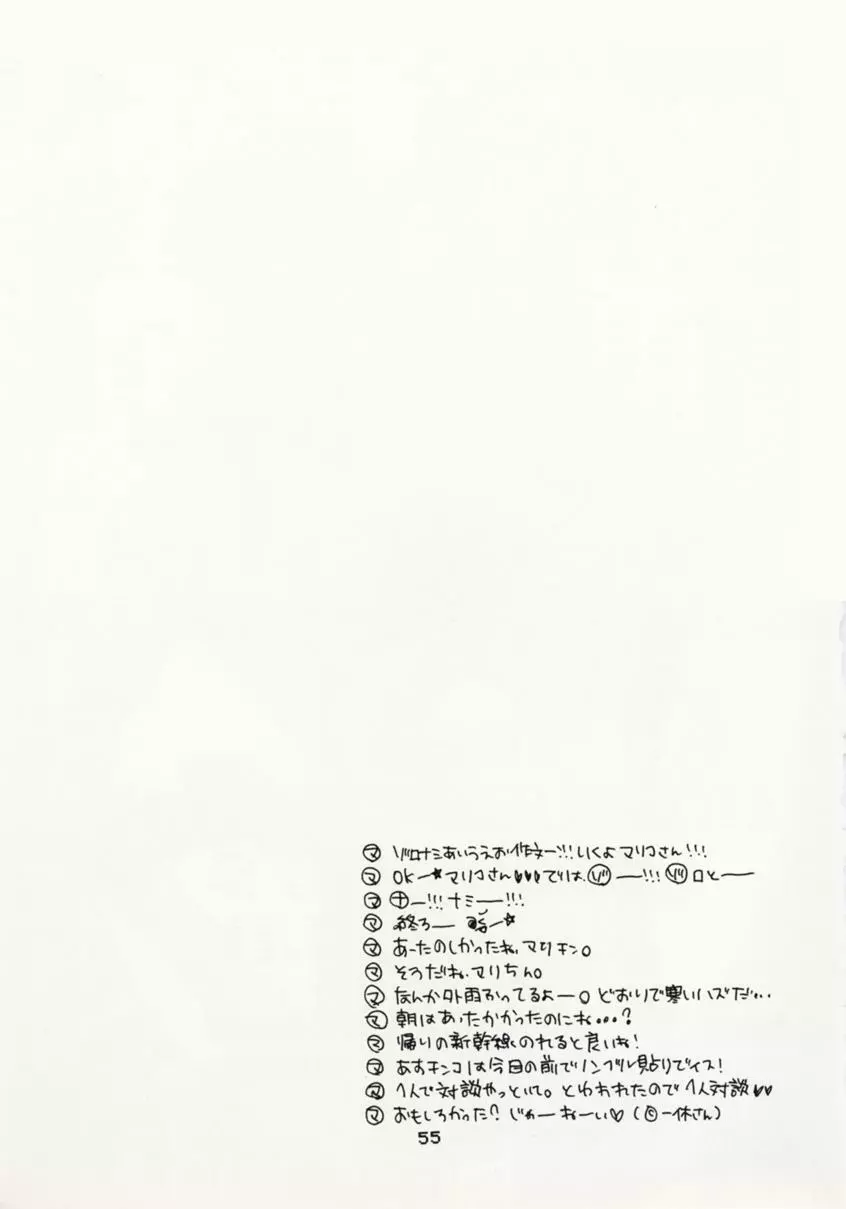 ㋮ ゾロナミあいうえお作文ー!!!いくよマリコさん!!!
㋮ OKー★マリコさん♥♥♥では、ゾー!!! ゾロとー
㋮ ナー!!!ナミー!!!
㋮ 終ろー ★
㋮ あーたのしかったね、マリチン。
㋮ そうだね、マリちん。
㋮ なんか外雨ふってるよー。どおりで寒いハズだ…
㋮ 朝はあったかかったのにね…?
㋮ 帰りの新幹線のれると良いね!
㋮ あすチンコは今日の前でノンブル貼りでイス!
㋮ 1人で対談やっといて。といわれたので1人対談♥♥
㋮ おもしろかった?じゃーねーい♡(一休さん)
55